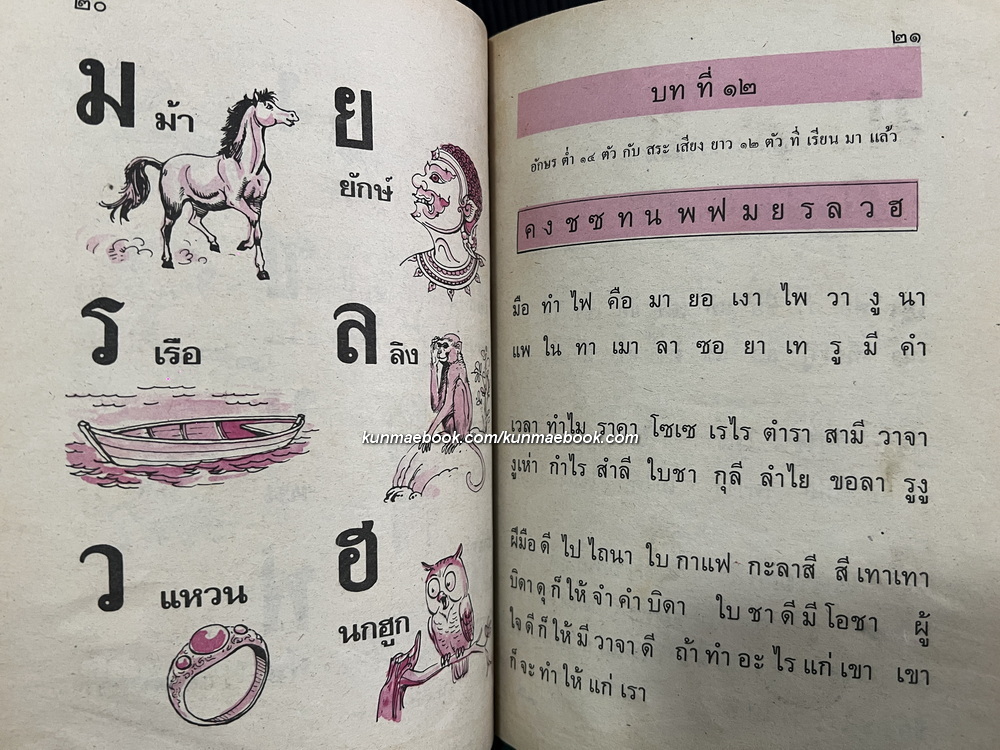 ๒๐
ม ม้า
ย
ยักษ์
ร เรือ
ล ลิง
ว แหวน
ฮ
นกฮูก
kunmaebook.com/kunmaebook.com
๒๑
บท ที่ ๑๒
อักษร ต่ำ ๑๔ ตัว กับ สระ เสียง ยาว ๑๒ ตัว ที่ เรียน มา แล้ว
ค ง ช ซ ท น พ ฟ ม ย ร ล ว ฮ
มือ ทำ ไฟ คือ มา ยอ เงา ไพ วา งู นา
แพ ใน ทา เมา ลา ซอ ยา เท รู มี คำ
เวลา ทำไม ราคา โซเซ เรไร ตำรา สามี วาจา
งูเห่า กำไร สำลี ใบชา กุลี ลำไย ขอลา รูงู
ฝีมือ ดี ไป ไถนา ใบ กาแฟ กะลาสี สี เทาเทา
บิดา ดุ ก็ ให้ จำ คำ บิดา ใบ ชา ดี มี โอชา ผู้
ใจ ดี ก็ ให้ มี วาจา ดี ถ้า ทำ อะ ไร แก่ เขา เขา
ก็ จะ ทำ ให้ แก่ เรา